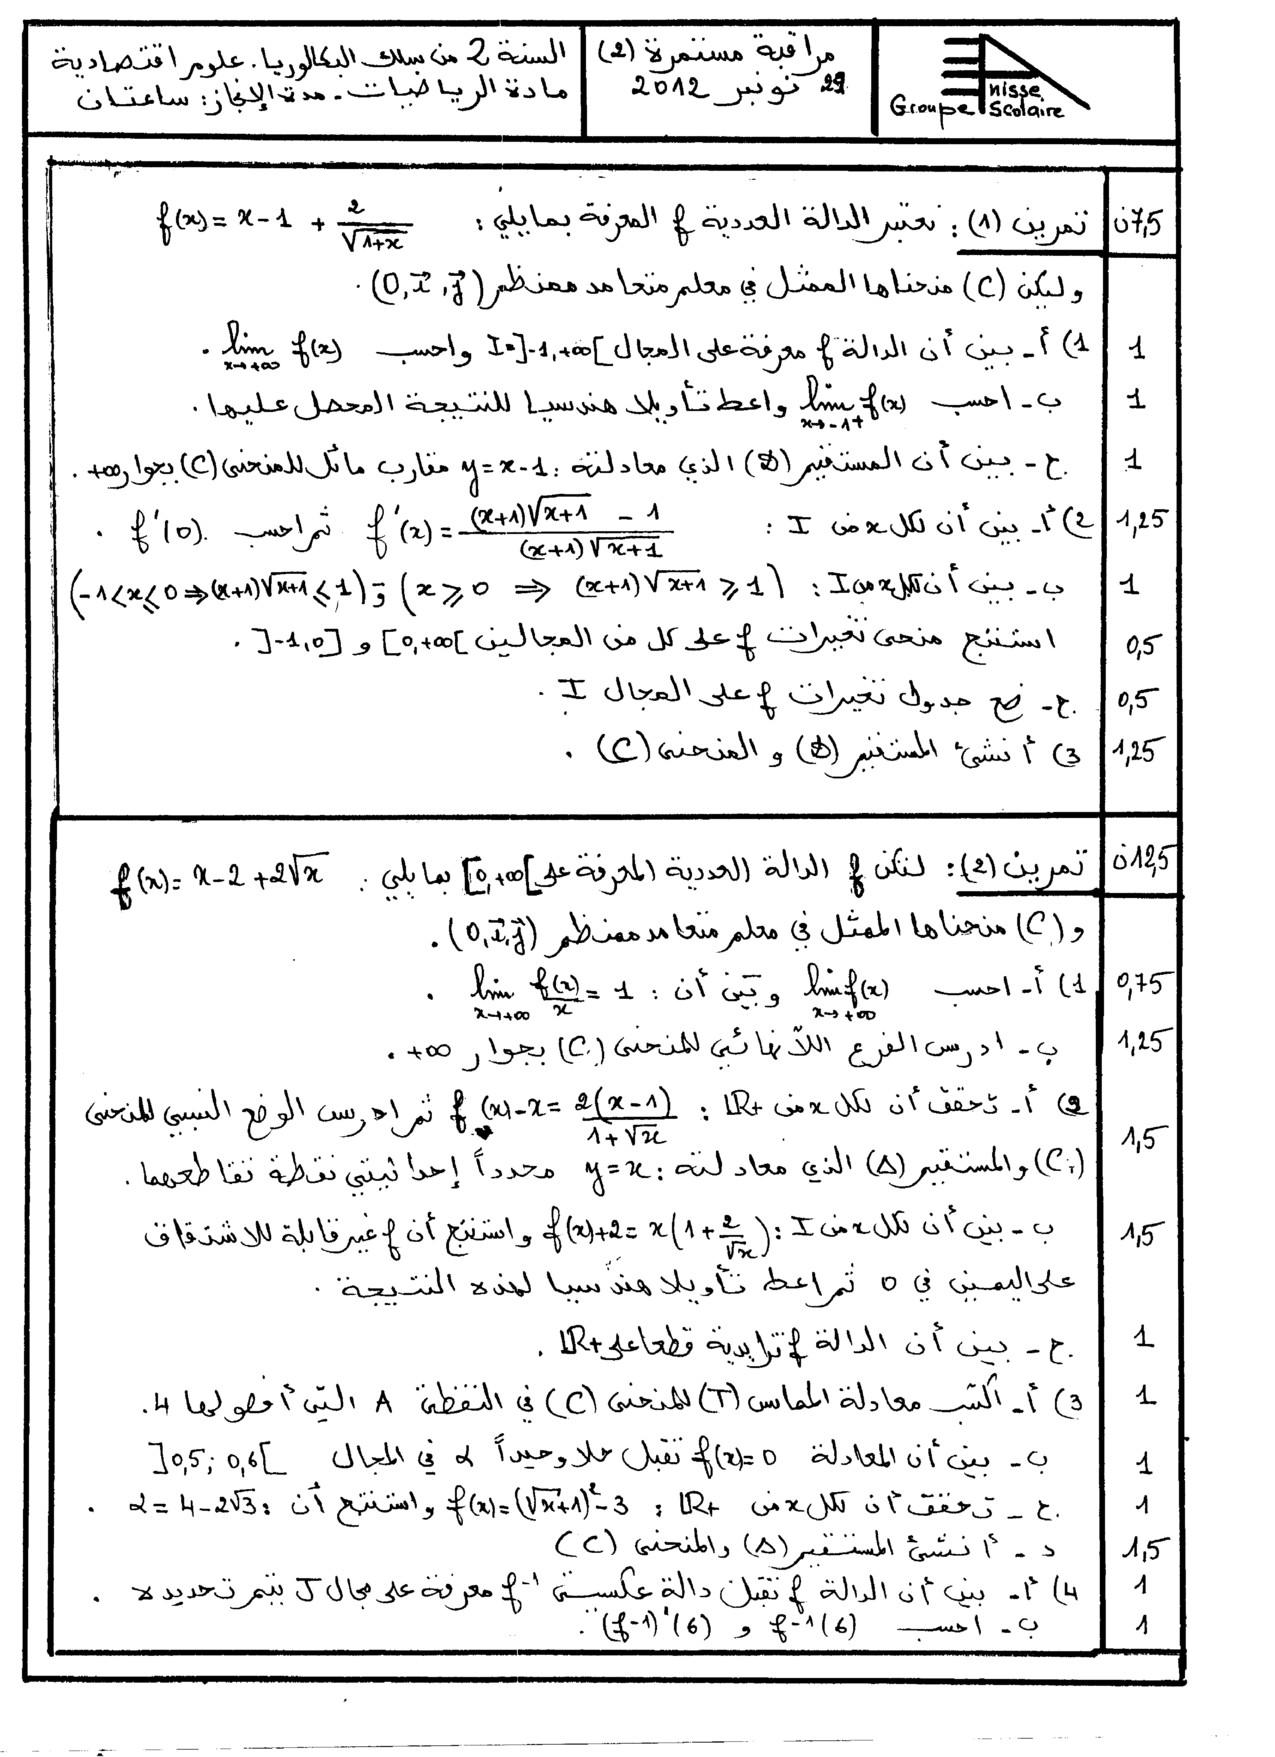 السنة 2 من سلك البكالوريا. علوم اقتصادية
مادة الرياضيات - مدة الإنجاز: ساعتان
مراقبة مستمرة (2)
29 نونبر 2012
Groupe Anisse Scolaire
7,5ن تمرين (1): نعتبر الدالة العددية f المعرفة بمايلي: f(x) = x - 1 + 2/√(1+x)
وليكن (C) منحناها الممثل في معلم متعامد ممنظم (O, i⃗, j⃗).
1 1) أ - بين أن الدالة f معرفة على المجال I=]-1,+∞[ واحسب lim f(x) x→+∞ .
1 ب - احسب lim f(x) x→-1+ واعط تأويلا هندسيا للنتيجة المحصل عليها.
1 ج - بين أن المستقيم (D) الذي معادلته: y = x-1 مقارب مائل للمنحنى (C) بجوار +∞.
1,25 2) أ - بين أن لكل x من I : f'(x) = ((x+1)√(x+1) - 1)/((x+1)√(x+1)) ثم احسب f'(0).
1 ب - بين أن لكل x من I : (x ⩾ 0 ⇒ (x+1)√(x+1) ⩾ 1) و (-1<x⩽0 ⇒ (x+1)√(x+1) ⩽ 1)
0,5 استنتج منحى تغيرات f على كل من المجالين [0,+∞[ و ]-1,0].
0,5 ج - ضع جدول تغيرات f على المجال I.
1,25 3) أنشئ المستقيم (D) و المنحنى (C).
12,5ن تمرين (2): لتكن f الدالة العددية المعرفة على [0,+∞[ بمايلي: f(x) = x - 2 + 2√x
و (C) منحناها الممثل في معلم متعامد ممنظم (O, i⃗, j⃗).
0,75 1) أ - احسب lim f(x) x→+∞ وبَيِّن أن: lim f(x)/x = 1 x→+∞ .
1,25 ب - ادرس الفرع اللانهائي للمنحنى (C) بجوار +∞.
1,5 2) أ - تحقق أن لكل x من IR+ : f(x)-x = 2(x-1)/(1+√x) ثم ادرس الوضع النسبي للمنحنى
(C) والمستقيم (Δ) الذي معادلته: y = x محدداً إحداثيتي نقطة تقاطعهما.
1,5 ب - بين أن لكل x من I : f(x)+2 = x(1+2/√x) واستنتج أن f غير قابلة للاشتقاق
على اليمين في 0 ثم اعط تأويلا هندسيا لهذه النتيجة.
1 ج - بين أن الدالة f تزايدية قطعا على IR+.
1 3) أ - أكتب معادلة المماس (T) للمنحنى (C) في النقطة A التي أفصولها 4.
1 ب - بين أن المعادلة f(x)=0 تقبل حلا وحيداً α في المجال ]0,5; 0,6[
1 ج - تحقق أن لكل x من IR+ : f(x) = (√x+1)² - 3 واستنتج أن: α = 4-2√3 .
1,5 د - أنشئ المستقيم (Δ) والمنحنى (C)
1 4) أ - بين أن الدالة f تقبل دالة عكسية f⁻¹ معرفة على مجال J يتم تحديده.
1 ب - احسب f⁻¹(6) و (f⁻¹)'(6).